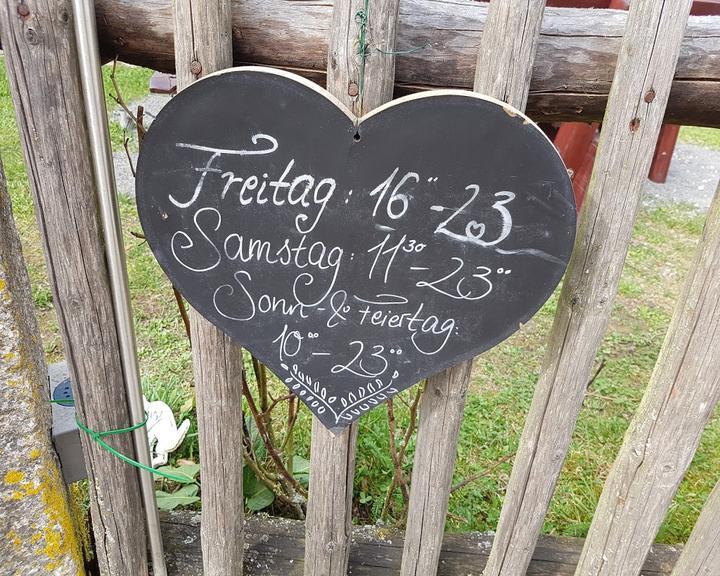 Freitag: 16°°-23
Samstag: 11³⁰-23°°
Sonn-& Feiertag:
10°°-23°°